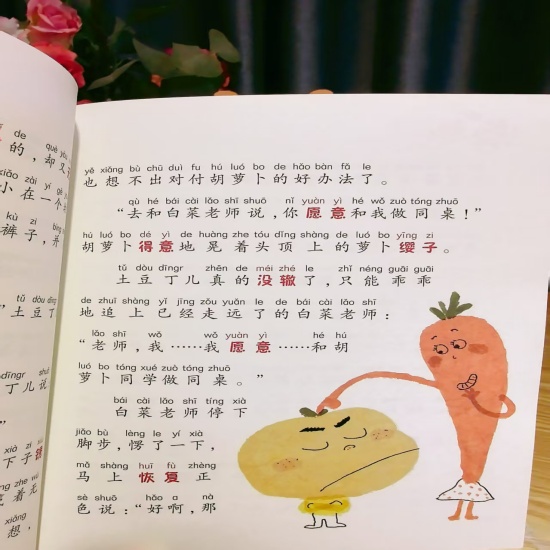 de què yòu
的，却又
zài yí gè
小在一个
kù zi bìng
裤子，并
“土豆丁
dīngr shuō
丁儿说
xià zi
下子
zhe wú
着无
xiǎng
想，
yě xiǎng bù chū duì fu hú luó bo de hǎo bàn fǎ le
也想不出对付胡萝卜的好办法了。
qù hé bái cài lǎo shī shuō nǐ yuàn yì hé wǒ zuò tóng zhuō
“去和白菜老师说，你愿意和我做同桌！”
hú luó bo dé yì de huàng zhe tóu dǐng shàng de luó bo yīng zi
胡萝卜得意地晃着头顶上的萝卜缨子。
tǔ dòu dīngr zhēn de méi zhé le zhǐ néng guāi guāi
土豆丁儿真的没辙了，只能乖乖
de zhuī shàng yǐ jīng zǒu yuǎn le de bái cài lǎo shī
地追上已经走远了的白菜老师：
lǎo shī wǒ wǒ yuàn yì hé hú
“老师，我……我愿意……和胡
luó bo tóng xué zuò tóng zhuō
萝卜同学做同桌。”
bái cài lǎo shī tíng xià
白菜老师停下
jiǎo bù lèng le yí xià
脚步，愣了一下，
mǎ shàng huī fù zhèng
马上恢复正
sè shuō hǎo a nà
色说：“好啊，那